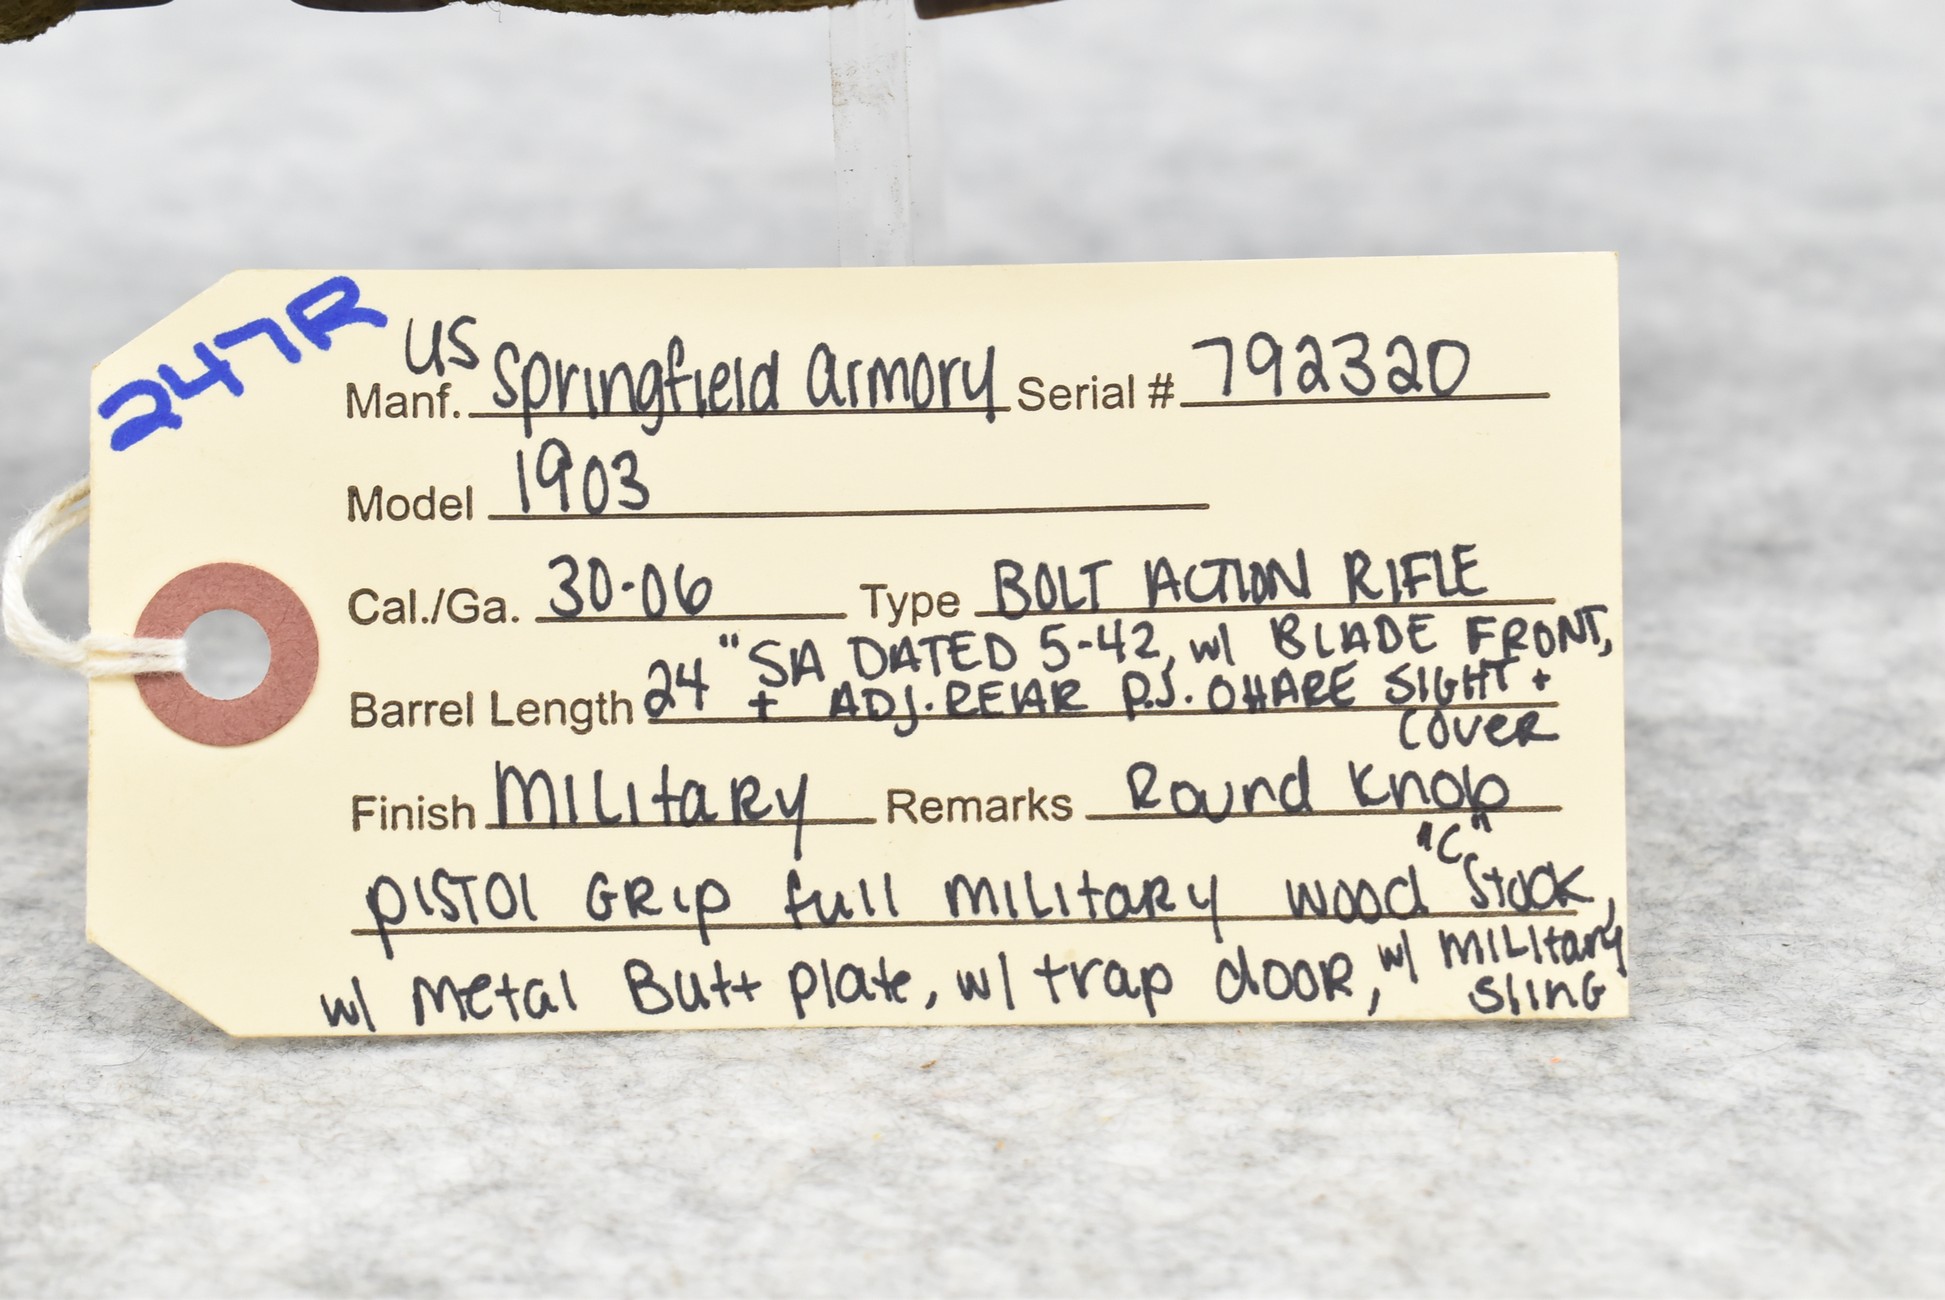 247R
US
Manf. Springfield Armory Serial # 792320
Model 1903
Cal./Ga. 30-06 Type BOLT ACTION RIFLE
Barrel Length 24" SA DATED 5-42, w/ BLADE FRONT,
+ ADJ. REAR P.J. OHARE SIGHT +
COVER
Finish MILITARY Remarks Round Knob
PISTOL GRIP full MILITARY wood "C" Stock,
w/ Metal Butt plate, w/ trap dOOR, w/ MILITARY
SLING